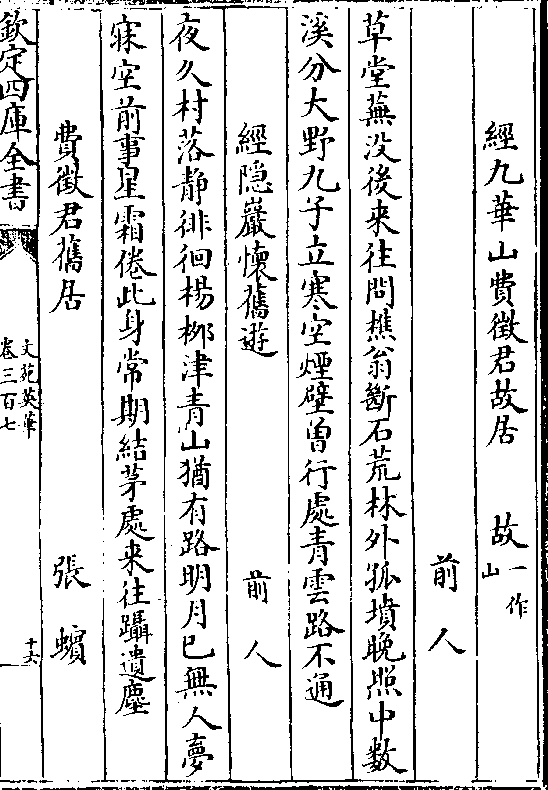 經九華山費徵君故居　故一作山
前人
草堂蕪没後来往問樵翁斷石荒林外孤墳晚照中數
溪分大野九子立寒空煙壁曽行處青雲路不通
經隠巖懷舊遊　前人
夜久村落靜徘徊楊栁津青山猶有路明月已無人夢
寐空前事星霜倦此身常期結茅處来往躡遺塵
費徵君舊居　張蠙
欽定四庫全書
文苑英華
卷三百七
十六